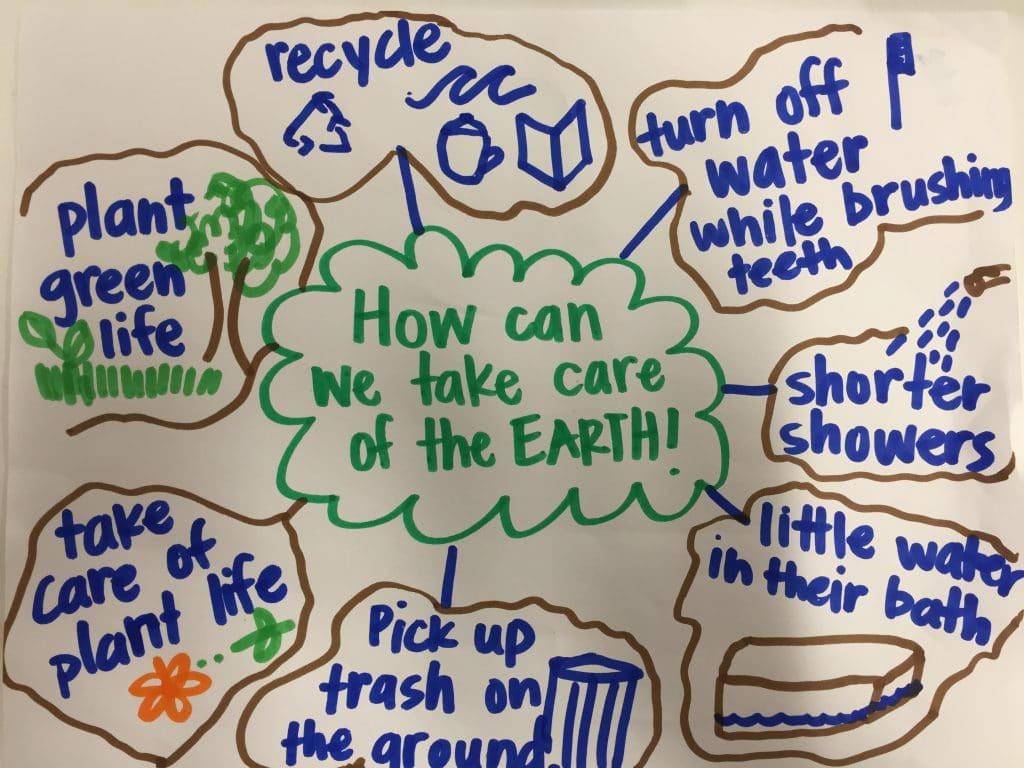 recycle
turn off
water
while brushing
teeth
plant
green
life
How can
we take care
of the EARTH!
shorter
showers
take
care of
plant life
little water
in their bath
Pick up
trash on
the ground!